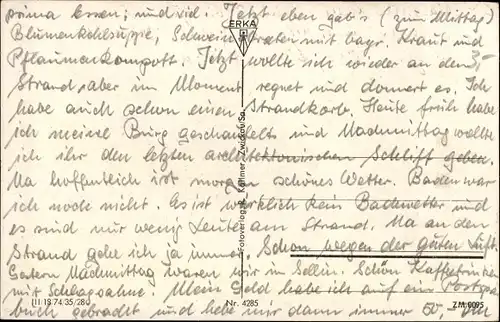 prima Essen; und viel. Jetzt eben gab's (zum Mittag)
ERKA
Blumenkohlsuppe, Schweinebraten mit bayr. Kraut und
Pflaumenkompott. Jetzt wollte ich wieder an den
Strand, aber im Moment regnet und donnert es. Ich
habe auch schon einen Strandkorb. Heute früh habe
ich meine Burg geschaufelt und Nachmittag wollte
ich ihr den letzten architektonischen Schliff geben.
Na hoffentlich ist morgen schönes Wetter. Baden war
ich noch nicht. Es ist wirklich kein Badewetter und
es sind nur wenig Leute am Strand. Na an den
Strand gehe ich ja immer. Schon wegen der guten Luft.
Gestern Nachmittag waren wir in Sellin. Schön Kaffeetrinken
mit Schlagsahne. Mein Geld habe ich auf ein Postspar
buch gebracht und hebe mir dann immer 50,- DM
Fotoverlag K. Kallmer, Zwickau Sa.
III 18 74 35/280
Nr. 4285